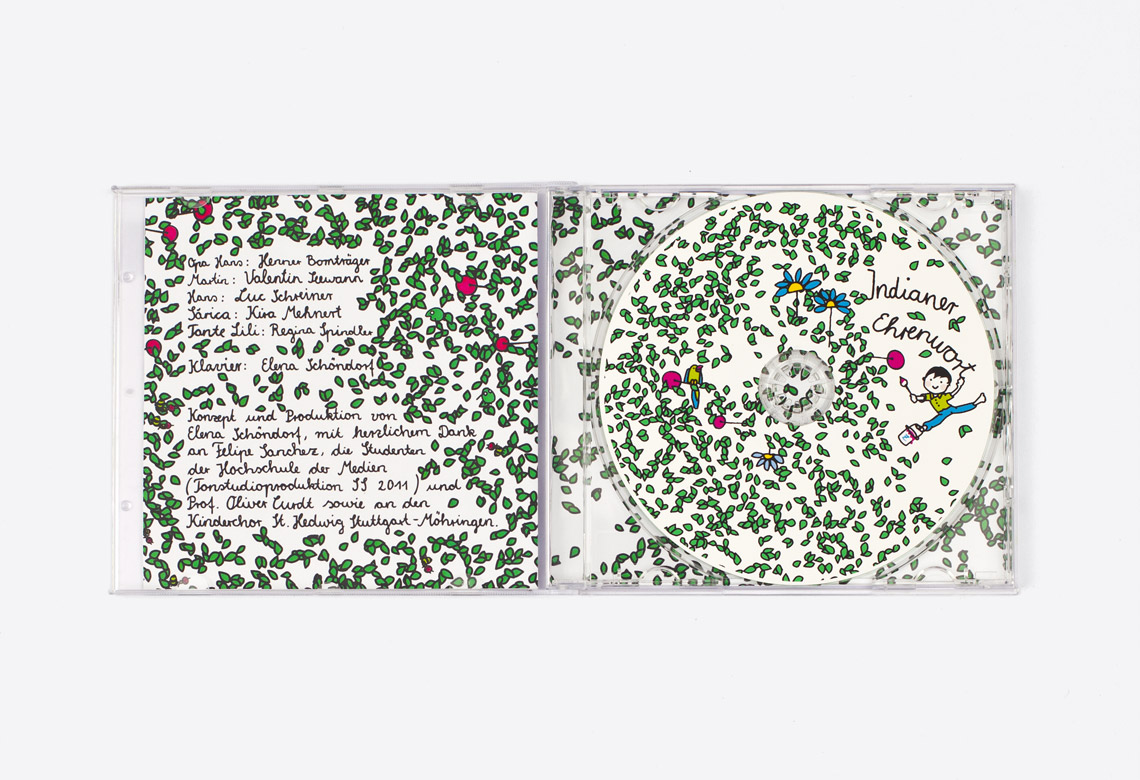 Opa Hans: Henner Bomträger
Martin: Valentin Leewann
Hans: Luc Schreiner
Sárica: Kira Mehnert
Tante Lili: Regina Spindler
Klavier: Elena Schöndorf
Konzept und Produktion von
Elena Schöndorf, mit herzlichem Dank
an Felipe Sanchez, die Studenten
der Hochschule der Medien
(Tonstudioproduktion SS 2011) und
Prof. Oliver Curdt sowie an den
Kinderchor St. Hedwig Stuttgart-Möhringen.
Indianer
Ehrenwort